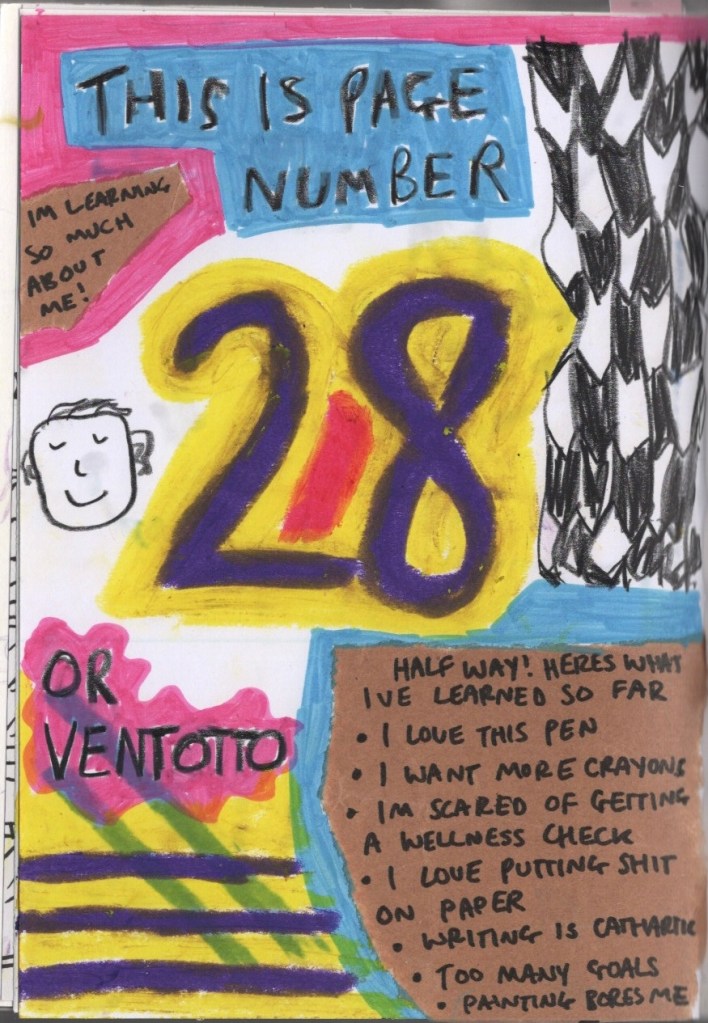 THIS IS PAGE
NUMBER
IM LEARNING
SO MUCH
ABOUT
ME!
28
OR
VENTOTTO
HALF WAY! HERES WHAT
IVE LEARNED SO FAR
• I LOVE THIS PEN
• I WANT MORE CRAYONS
• IM SCARED OF GETTING
A WELLNESS CHECK
• I LOVE PUTTING SHIT
ON PAPER
• WRITING IS CATHARTIC
• TOO MANY GOALS
• PAINTING BORES ME